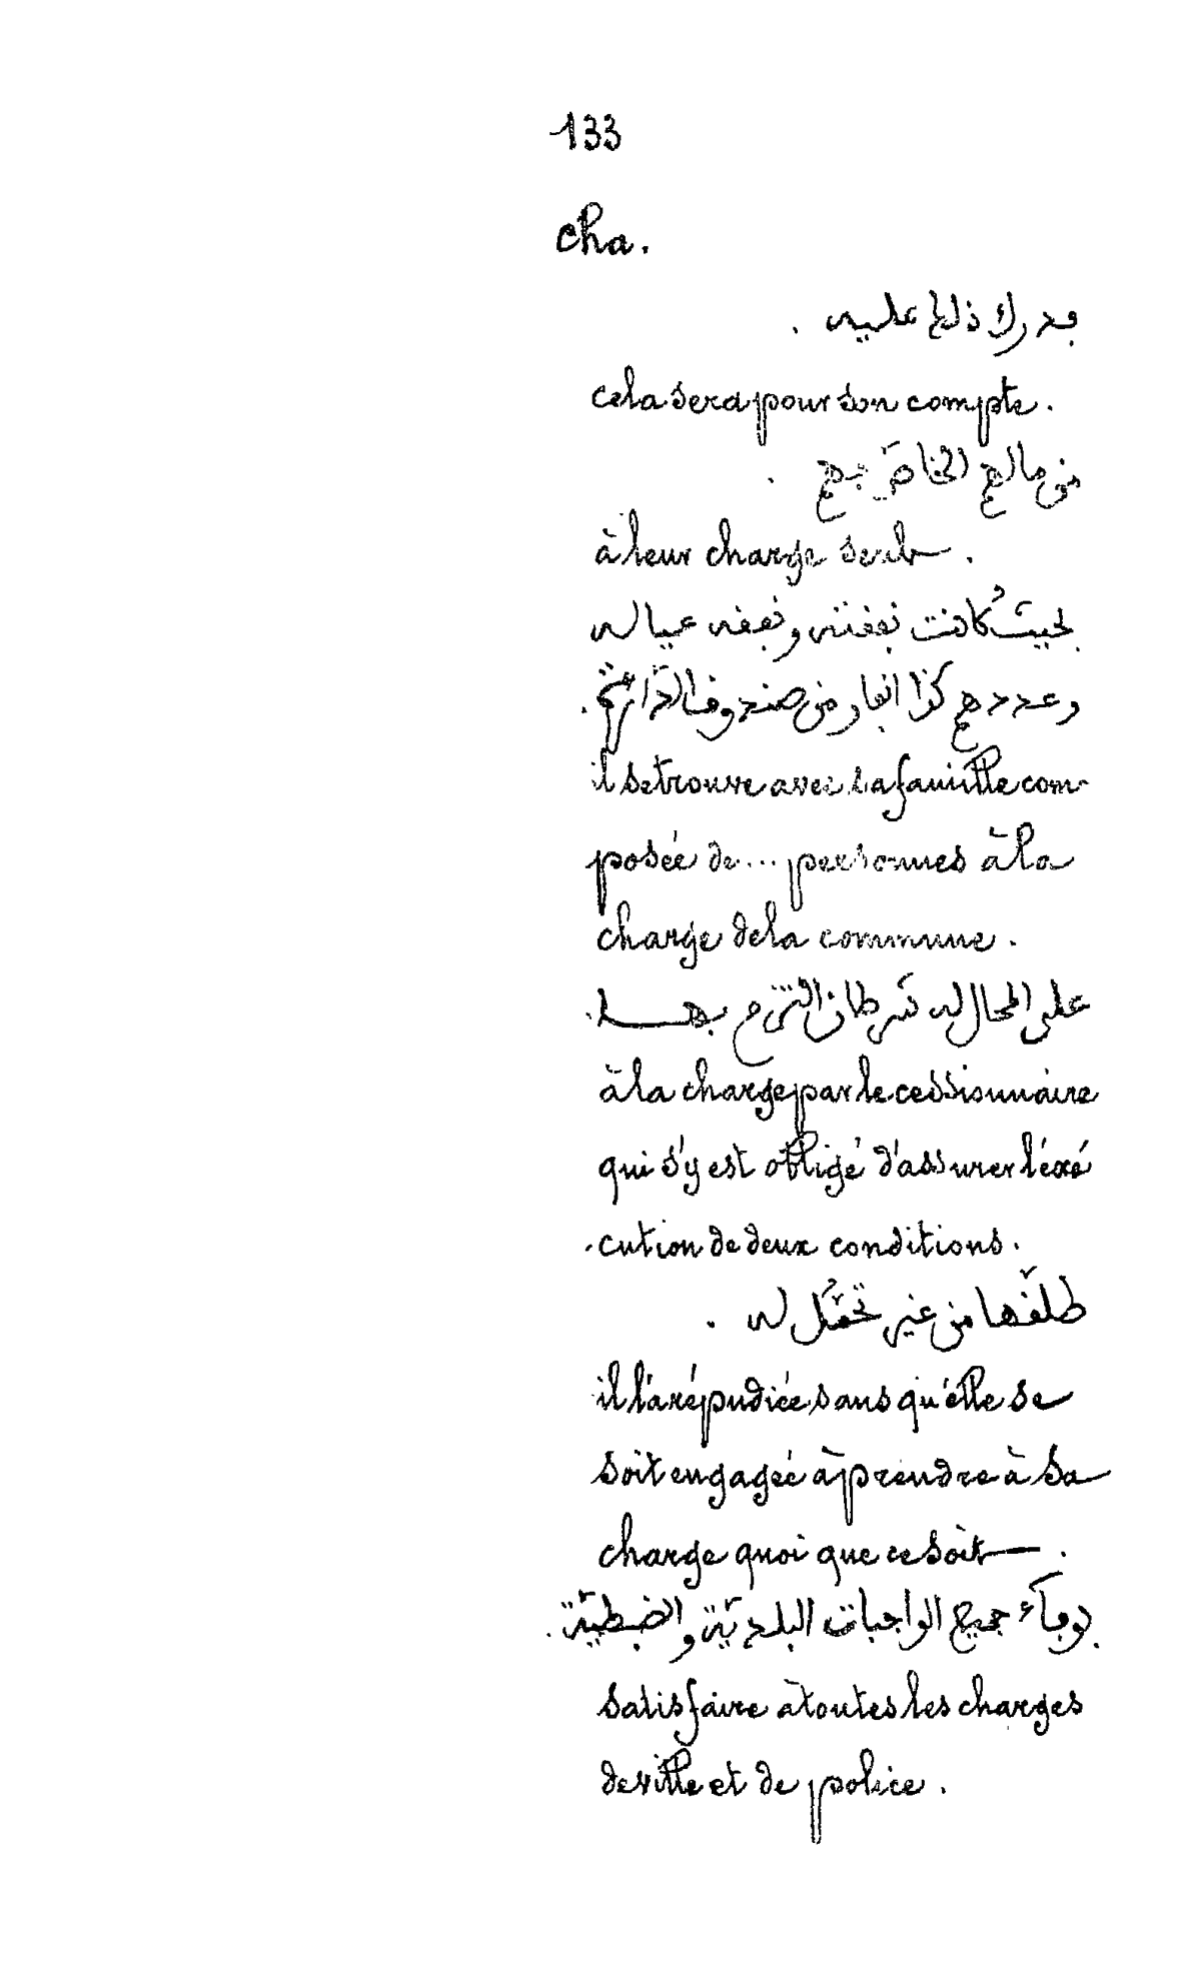 133
cha.
فدرك ذلك عليه .
cela sera pour son compte .
من مالهم الخاص بهم .
à leur charge seule .
بحيث كانت نفقته ونفقه عياله
وعددهم كذا انفار من صندوق الدائرة .
il se trouve avec sa famille com-
posée de ... personnes à la
charge de la commune .
على المحال له شرطان التزم بهما .
à la charge par le cessionnaire
qui s'y est obligé d'assurer l'éxé
-cution de deux conditions .
طلقها من غير تحمل له .
il l'a répudiée sans qu'elle se
soit engagée à prendre à sa
charge quoi que ce soit — .
بوفاء جميع الواجبات البلديّة والضبطيّة .
satisfaire à toutes les charges
de ville et de police .